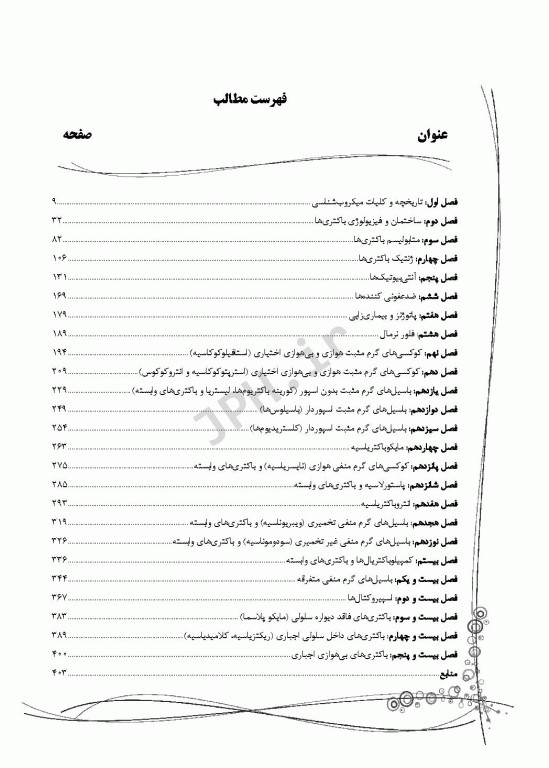 فهرست مطالب
عنوان صفحه
فصل اول: تاریخچه و کلیات میکروب‌شناسی ۹
فصل دوم: ساختمان و فیزیولوژی باکتری‌ها ۳۲
فصل سوم: متابولیسم باکتری‌ها ۸۲
فصل چهارم: ژنتیک باکتری‌ها ۱۰۶
فصل پنجم: آنتی‌بیوتیک‌ها ۱۳۱
فصل ششم: ضدعفونی کننده‌ها ۱۶۹
فصل هفتم: پاتوژنز و بیماری‌زایی ۱۷۹
فصل هشتم: فلور نرمال ۱۸۹
فصل نهم: کوکسی‌های گرم مثبت هوازی و بی‌هوازی اختیاری (استافیلوکوکاسیه) ۱۹۴
فصل دهم: کوکسی‌های گرم مثبت هوازی و بی‌هوازی اختیاری (استرپتوکوکاسیه و انتروکوکوس) ۲۰۹
فصل یازدهم: باسیل‌های گرم مثبت بدون اسپور (کورینه باکتریوم‌ها، لیستریا و باکتری‌های وابسته) ۲۲۹
فصل دوازدهم: باسیل‌های گرم مثبت اسپوردار (باسیلوس‌ها) ۲۴۹
فصل سیزدهم: باسیل‌های گرم مثبت اسپوردار (کلستریدیوم‌ها) ۲۵۴
فصل چهاردهم: مایکوباکتریاسیه ۲۶۳
فصل پانزدهم: کوکسی‌های گرم منفی هوازی (نایسریاسیه) و باکتری‌های وابسته ۲۷۵
فصل شانزدهم: پاستورلاسیه و باکتری‌های وابسته ۲۸۵
فصل هفدهم: انتروباکتریاسیه ۲۹۳
فصل هجدهم: باسیل‌های گرم منفی تخمیری (ویبریوناسیه) و باکتری‌های وابسته ۳۱۹
فصل نوزدهم: باسیل‌های گرم منفی غیر تخمیری (سودوموناسیه) و باکتری‌های وابسته ۳۲۶
فصل بیستم: کمپیلوباکتریال‌ها و باکتری‌های وابسته ۳۳۶
فصل بیست و یکم: باسیل‌های گرم منفی متفرقه ۳۴۴
فصل بیست و دوم: اسپیروکتال‌ها ۳۶۷
فصل بیست و سوم: باکتری‌های فاقد دیواره سلولی (مایکو پلاسما) ۳۸۳
فصل بیست و چهارم: باکتری‌های داخل سلولی اجباری (ریکتزیاسیه، کلامیدیاسیه) ۳۸۹
فصل بیست و پنجم: باکتری‌های بی‌هوازی اجباری ۴۰۰
منابع ۴۰۳
JPH.ir